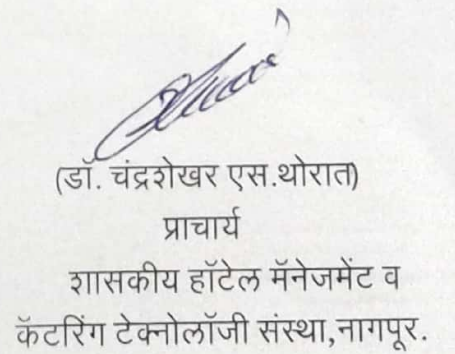 (डॉ. चंद्रशेखर एस.थोरात)
प्राचार्य
शासकीय हॉटेल मॅनेजमेंट व
कॅटरिंग टेक्नोलॉजी संस्था,नागपूर.